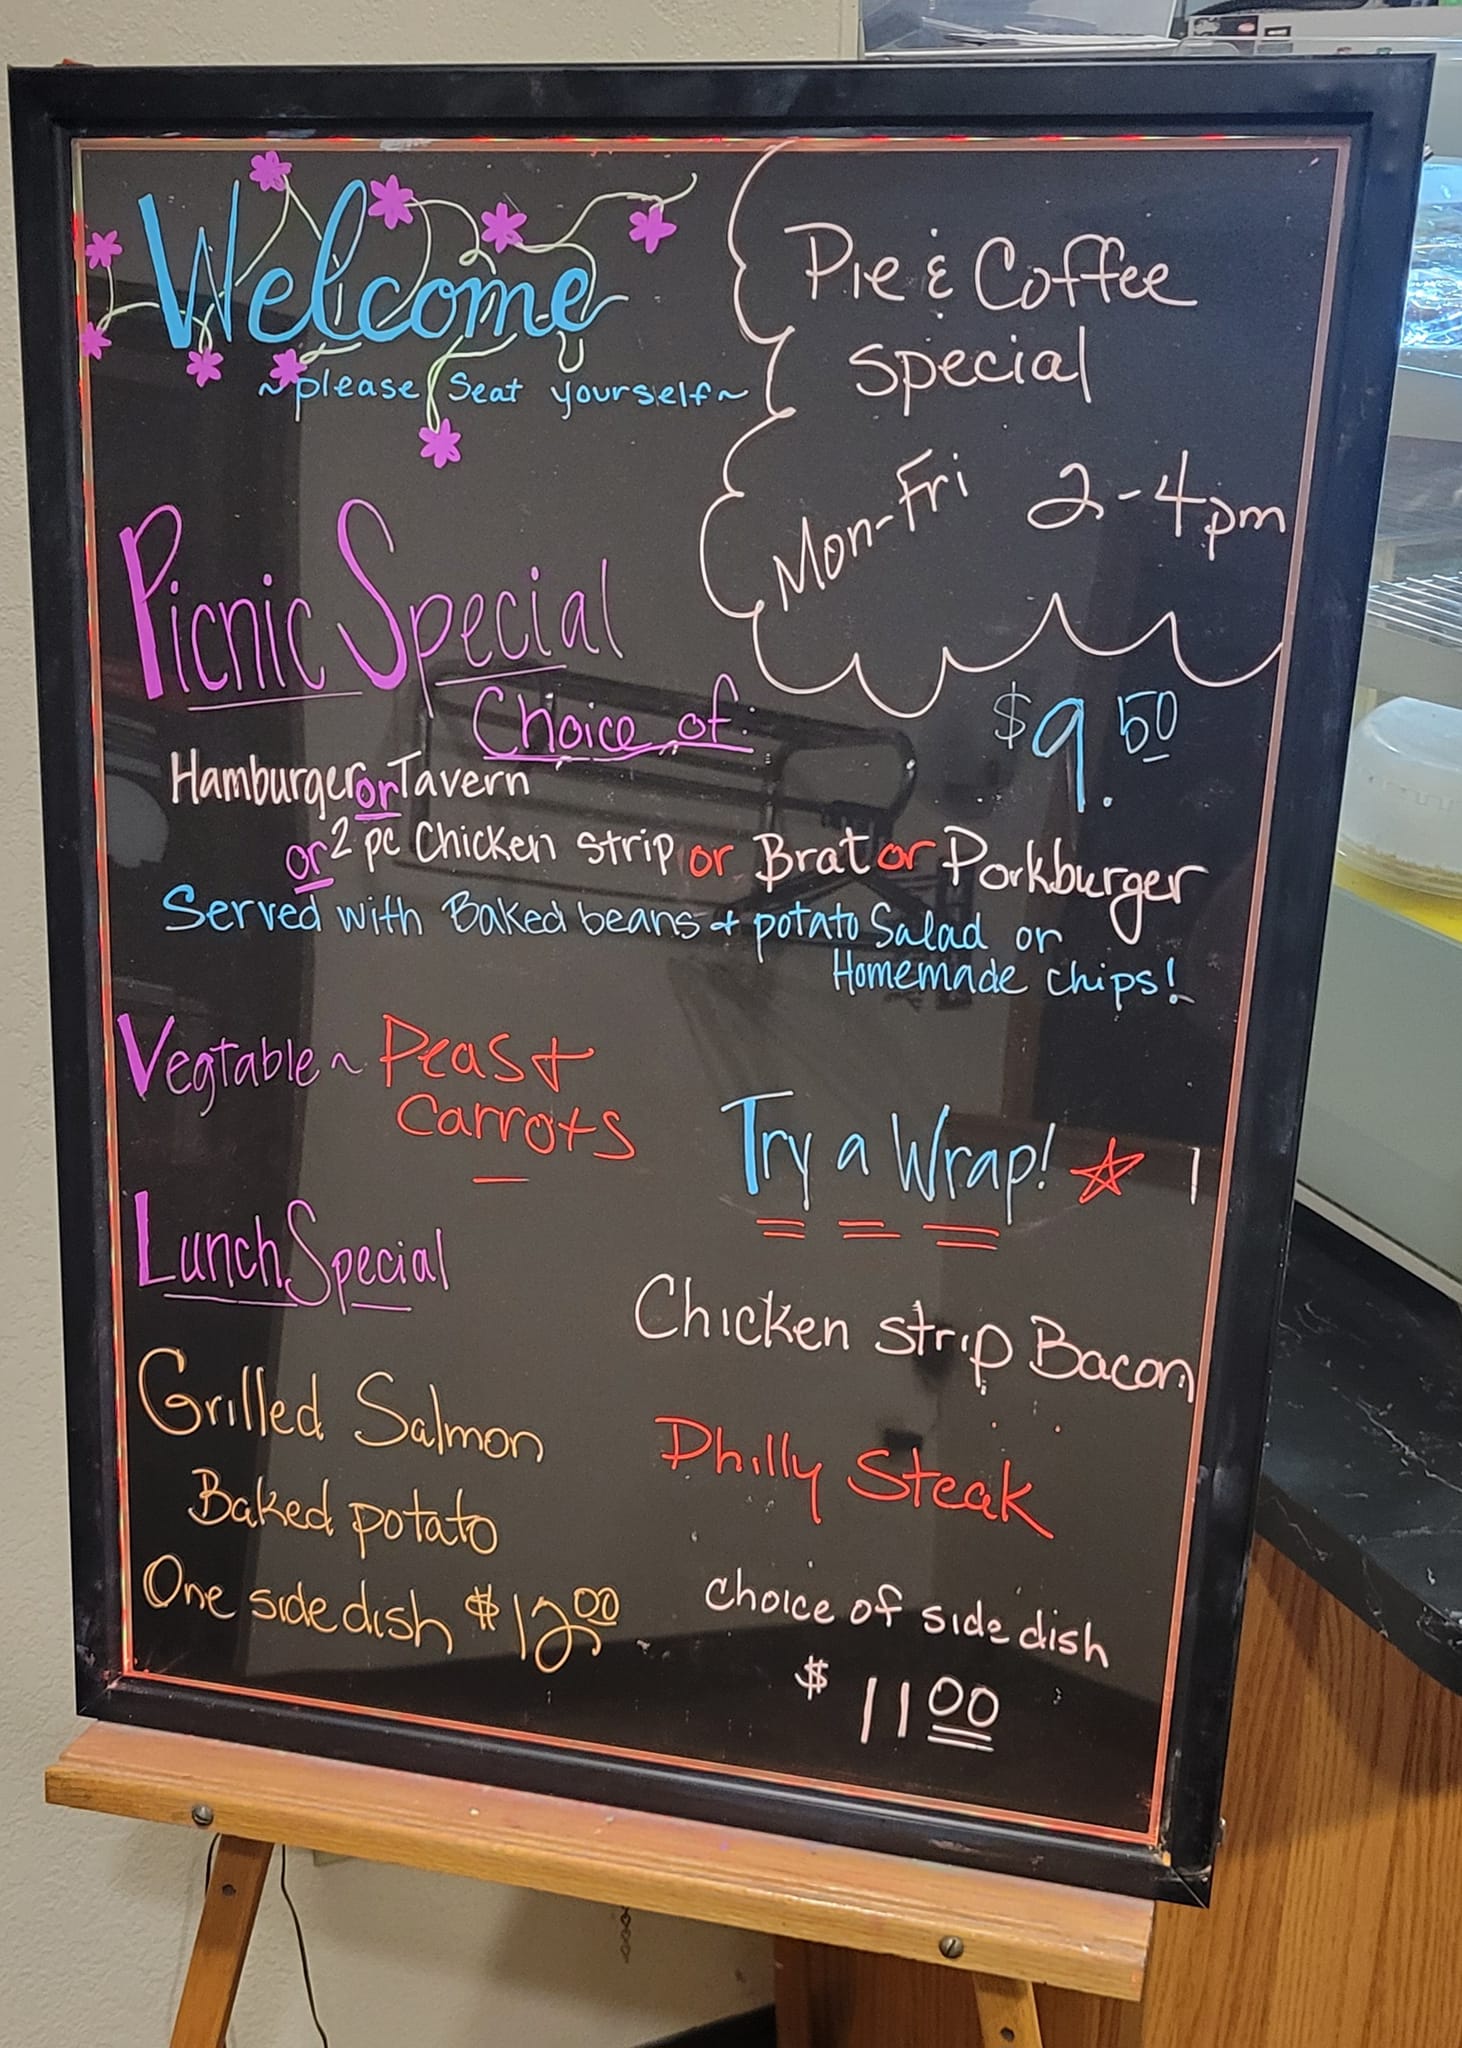 Welcome
~please seat yourself~
Pie & Coffee
special
Mon-Fri 2-4pm
Picnic Special
Choice of:
$9.50
Hamburger or Tavern
or 2 pc Chicken strip or Brat or Porkburger
Served with Baked beans + potato Salad or
Homemade chips!
Vegtable ~ Peas +
Carrots
Try a Wrap!
Chicken strip Bacon
Philly Steak
choice of side dish
$11.00
Lunch Special
Grilled Salmon
Baked potato
One side dish $12.00